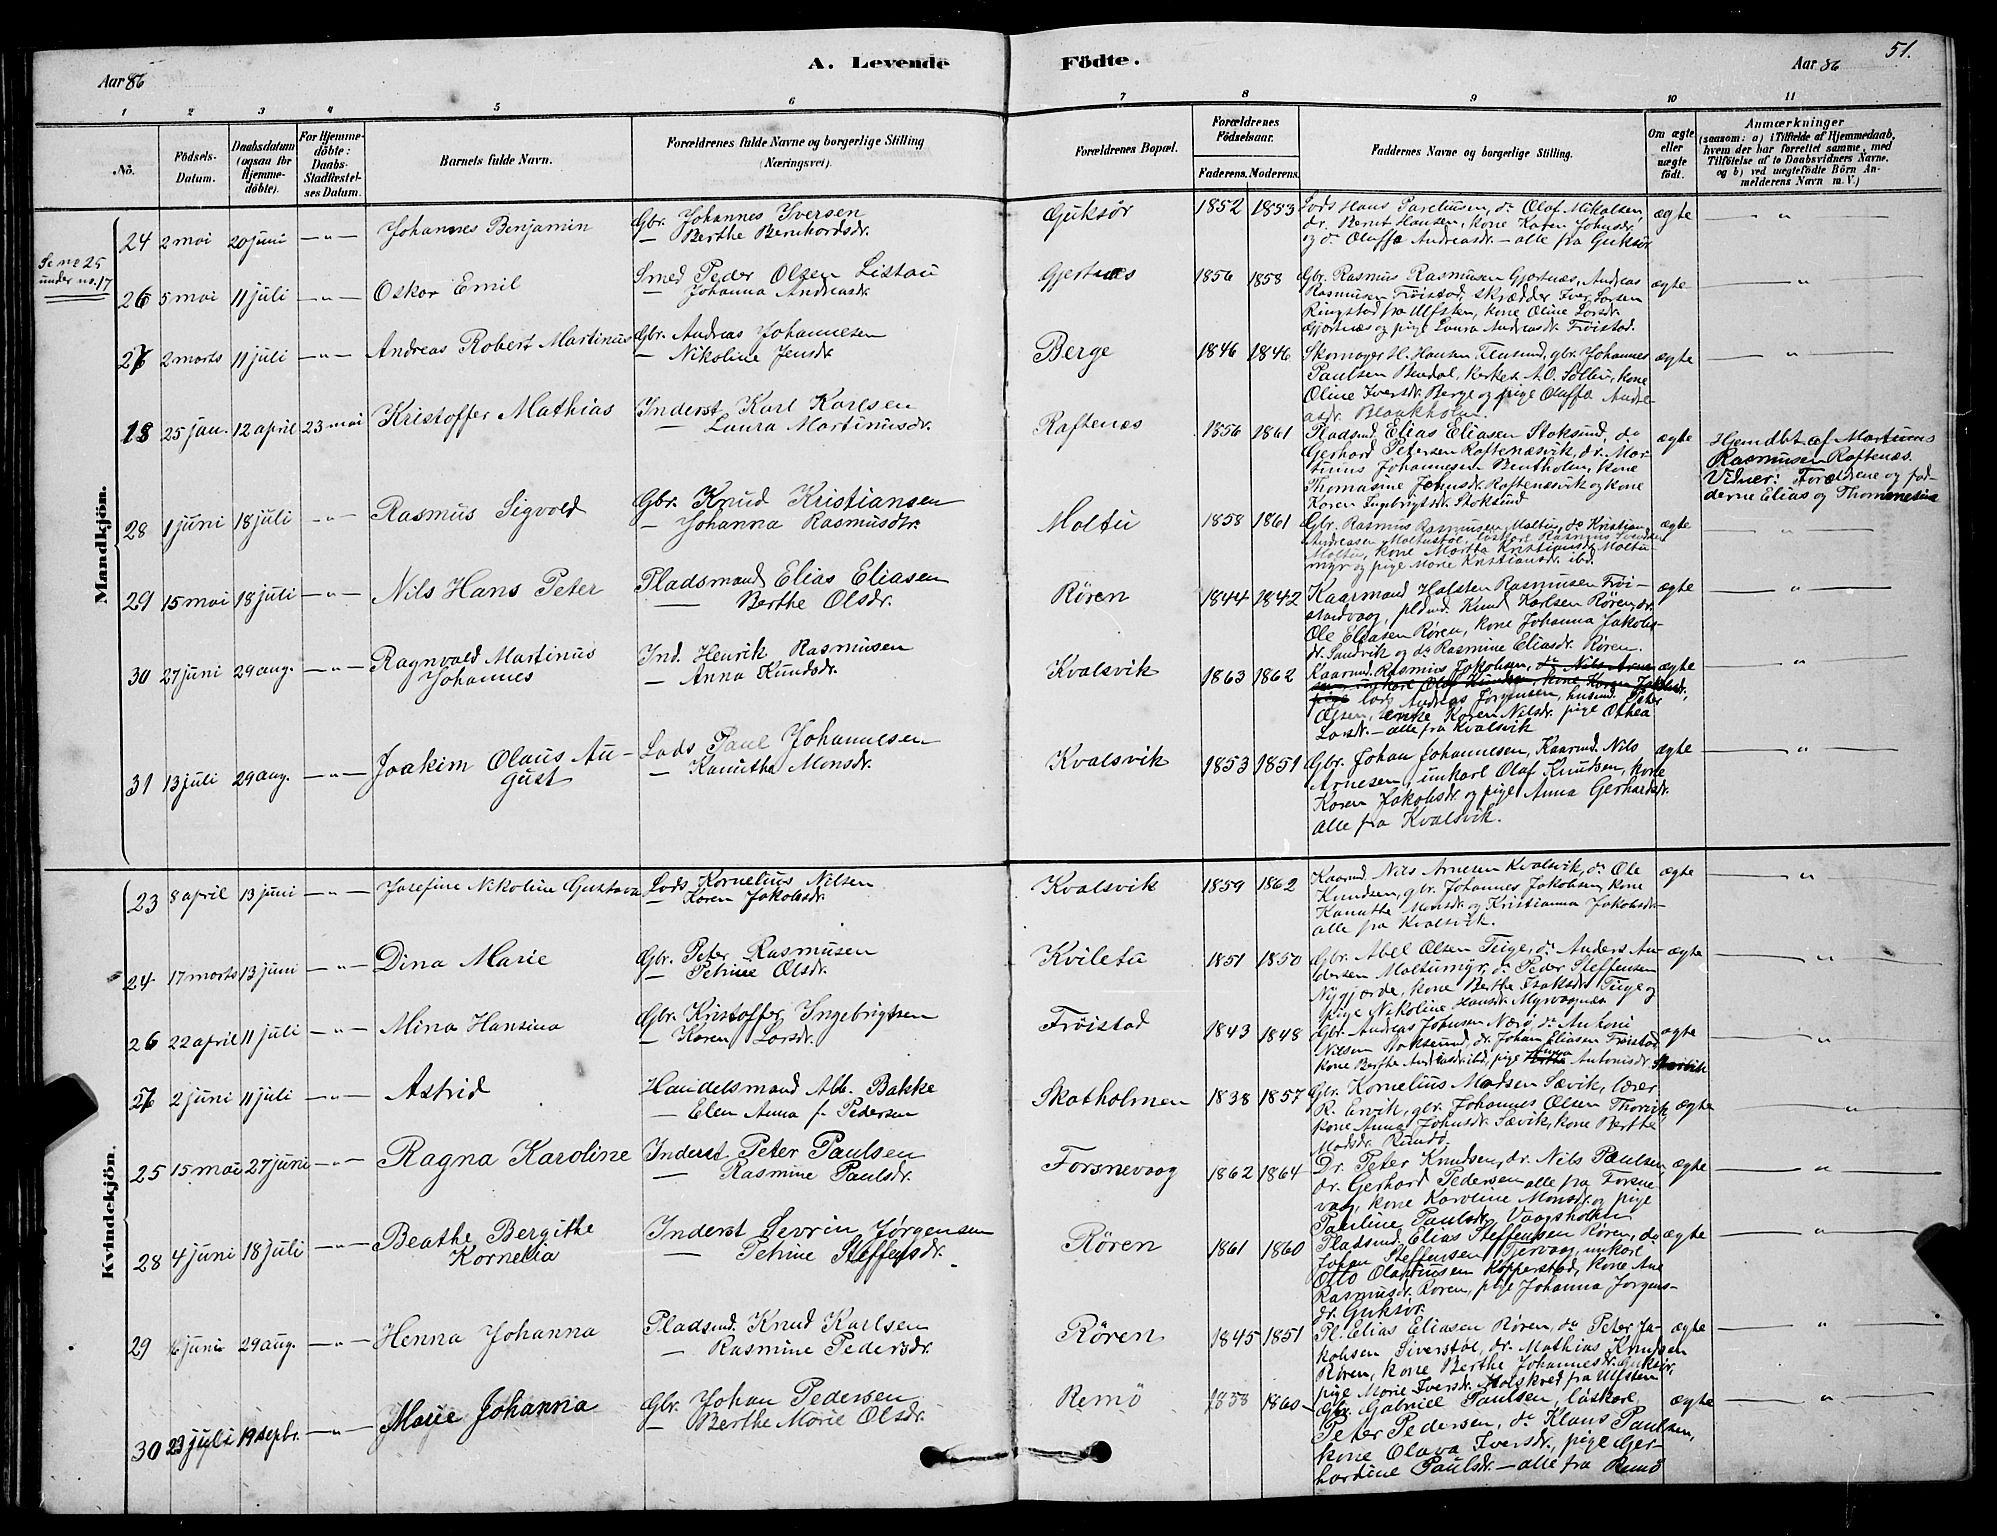 Aar 86
A. Levende
Födte.
Aar 86
51.
1 2 3 4 5 6 7 8 9 10 11
No.
Födsels-Datum.
Daabsdatum (ogsaa for Hjemme-döbte).
For Hjemme-döbte: Daabs-Stadfæstel-ses Datum.
Barnets fulde Navn.
Forældrenes fulde Navne og borgerlige Stilling (Næringsvei).
Forældrenes Bopæl.
Forældrenes Födselsaar.
Faderens. Moderens.
Faddernes Navne og borgerlige Stilling.
Om ægte eller uægte födt.
Anmærkninger
(saasom: a) i Tilfælde af Hjemmedaab, hvem der har forrettet samme, med Tilföielse af to Daabsvidners Navne. og b) ved uægtefödte Börn An-melderens Navn m. V.)
Mandkjön.
24 2 mai 20 juni — " — Johannes Benjamin
Gbr. Johannes Iversen
— Berthe Bernhardsdr.
Guksör 1852 1853
Lods Hans Pareliusen, do Olaf Mikalsen,
dr. Bernt Hansen, kone Karen Johnsdr.
og do Oluffa Andreasdr. — alle fra Guksör
ægte — " —
Se no 25
under no. 17
26 5 mai 11 juli — " — Oskar Emil
Smed Peder Olsen Listau
— Johanna Andreasdr.
Gjertnæs 1856 1858
Gbr. Rasmus Rasmusen Gjertnæs, Andreas
Rasmusen Fröistad, skrædder Iver Larsen
Ringstad fra Ulfsten, kone Oline Larsdr.
Gjertnæs og pige Laura Andreasdr. Fröistad.
ægte — " —
27 2 marts 11 juli — " — Andreas Robert Martinus
Gbr. Andreas Johannesen
— Nikoline Jensdr.
Berge 1846 1846
Skomager H. Hansen, gbr. Johannes
Paulsen Bendal, kone
Oline Iversdr. Berge og pige Oluffa Andre-
asdr. Blaakholm.
ægte — " —
18 25 jan. 12 april 23 mai Kristoffer Mathias
Inderst Karl Karlsen
— Laura Martinusdr.
Raftenæs 1856 1861
Pladsmd. Elias Eliasen Stoksund, do
Gerhard Petersen Raftenæsvik, dr. Mar-
tinus Johannesen Bentholm, kone
Thomasine Johnsdr. Raftenæsvik og kone
Karen Ingebrigtsdr. Stoksund
ægte
Hjemdbt. af Martinus
Rasmusen Raftenæs.
Vidner: Forældrene og fad-
derne Elias og Thomasine
28 1 juni 18 juli — " — Rasmus Sigvald
Gbr. Knud Kristiansen
— Johanna Rasmusdtr.
Moltu 1858 1861
Gbr. Rasmus Rasmusen Moltu, do Kristian
Andreasen Moltustöl, löskarl Rasmus
Moltu, kone Martha Kristiansdr. Moltu-
myr og pige Marie Kristiansdr. ibd.
ægte — " —
29 15 mai 18 juli — " — Nils Hans Peter
Pladsmand Elias Eliasen
— Berthe Olsdr.
Rören 1844 1842
Kaarmand Halsten Rasmusen Fröi-
stadvaag, pldmd. Knud Karlsen Rören, dr.
Ole Eliasen Rören, kone Johanna Jakobs-
dr. Sandvik og do Rasmine Eliasdr. Rören.
ægte — " —
30 27 juni 29 aug. — " — Ragnvald Martinus
Johannes
Ind. Henrik Rasmusen
— Anna Knudsdr.
Kvalsvik 1863 1862
Kaarmd. Rasmus Jakobsen, do Nils Arne-
sen, ungkarl Olaf Knudsen, kone Karen Jakobsdr.
pige lods Andreas Jörgensen, husmd. Peter
Olsen, enke Karen Nilsdr. pige Othea
Larsdr. — alle fra Kvalsvik
ægte — " —
31 13 juli 29 aug. — " — Joakim Olaus Au-
gust
Lods Paul Johannesen
— Kanutha Monsdr.
Kvalsvik 1853 1851
Gbr. Johan Johannesen, Kaarmd. Nils
Arnesen, unkarl Olaf Knudsen, kone
Karen Jakobsdr. og pige Anna Gerhardsdr.
alle fra Kvalsvik.
ægte — " —
Kvindekjön.
23 8 april 13 juni — " — Josefine Nikoline Gustava
Lods Kornelius Nilsen
— Karen Jakobsdr.
Kvalsvik 1859 1862
Kaarmd. Nils Arnesen Kvalsvik, do Ole
Knudsen, gbr. Johannes Jakobsen, kone
Kanutha Monsdr. og Kristianna Jakobsdr.—
alle fra Kvalsvik.
ægte — " —
24 17 marts 13 juni — " — Dina Marie
Gbr. Peter Rasmusen
— Petrine Olsdr.
Kvileta 1851 1850
Gbr. Abel Olsen Teige, do Anders An-
dersen Moltumyr, do Peder Steffensen
Nygjærde, kone Berthe Isaksdr. Teige og
pige Nikoline Hansdr. Myrvaagnæs
ægte — " —
26 22 april 11 juli — " — Mina Hansina
Gbr. Kristoffer Ingebrigtsen
— Karen Larsdr.
Fröistad 1843 1848
Gbr. Andreas Johnsen Nærö, do Antoni
Nilsen Stoksund, dr. Johan Eliasen Fröistad,
kone Berthe Andreasdr. ibd., pige Anna Antonisdr.
ægte — " —
27 2 juni 11 juli — " — Astrid
Handelsmand Abb. Bakke
— Elen Anna f. Pedersen
Skatholmen 1838 1857
Gbr. Kornelius Madsen Sævik, lærer
R. Ervik, gbr. Johannes Olsen Thorvik,
kone Anna Johnsdr. Sævik, kone Berthe
Madsdr. Remö.
ægte — " —
25 15 mai 27 juni — " — Ragna Karoline
Inderst Peter Paulsen
— Rasmine Paulsdr.
Forsnevaag 1862 1864
Dr. Peter Knudsen, dr. Nils Paulsen,
dr. Gerhard Pedersen alle fra Forsne-
vaag, kone Karoline Monsdr. og pige
Pauline Paulsdr. Vaagsholm
ægte — " —
28 4 juni 18 juli — " — Beathe Bergithe
Kornelia
Inderst Sevrin Jörgensen
— Petrine Steffensdr.
Rören 1861 1860
Pladsmd. Elias Steffensen Rören, do
Johan Steffensen Tjervaag, unkarl
Otto Olausen Kopperstad, kone Ane
Rasmusdr. Rören, pige Johanna Jörgens-
dr. Guksör.
ægte — " —
29 6 juni 29 aug. — " — Henna Johanna
Pladsmd. Knud Karlsen
— Rasmine Pedersdr.
Rören 1845 1851
Pl. Elias Eliasen Rören, do Peter Ja-
kobsen Siverstöl, dr. Mathias Knudsen
Rören, kone Berthe Johannesdr. Guksör,
pige Marie Iversdr. Molskred fra Ulfsten
ægte — " —
30 23 juli 19 septbr. — " — Marie Johanna
Gbr. Johan Pedersen
Berthe Marie Olsdr.
Remö 1858 1860
Gbr. Gabriel Paulsen, löskarl
Peter Pedersen, do Klaus Paulsen,
kone Olava Iversdr., pige Ger-
hardine Paulsdr. — alle fra Remö
ægte — " —